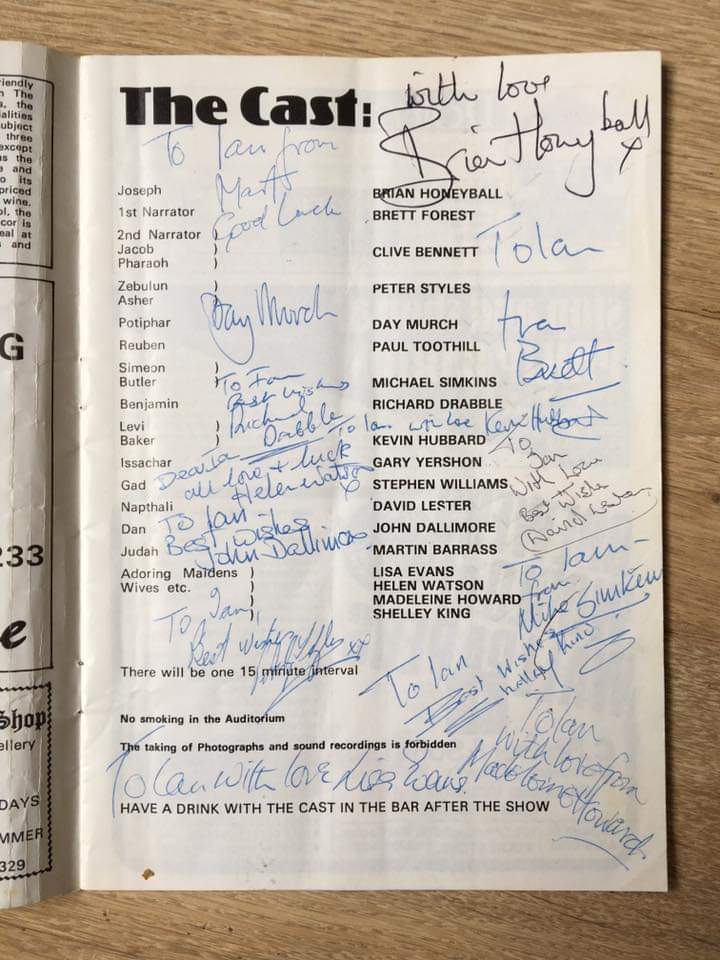 iendly
n The
s, the
alities
ubject
three
except
s the
e and
o its
priced
wine.
ol, the
cor is
eal at
s and
G
233
e
Shop
ellery
DAYS
MMER
329
The Cast:
with love
Brian Honeyball
x
To Ian from
Martt
Good Luck
Joseph BRIAN HONEYBALL
1st Narrator BRETT FOREST
2nd Narrator )
Jacob ) CLIVE BENNETT
Pharaoh )
To Ian
from
Brett
Zebulun ) PETER STYLES
Asher )
Day Murch
Potiphar DAY MURCH
Reuben PAUL TOOTHILL
Simeon )
Butler ) MICHAEL SIMKINS
To Ian
Best wishes
Richard
Drabble
Benjamin RICHARD DRABBLE
To Ian with love Kevin Hubbard
Levi )
Baker ) KEVIN HUBBARD
Issachar GARY YERSHON
Dear Ian
all love + luck
Helen Watson
x
Gad STEPHEN WILLIAMS
To
Ian
With Love
Best Wishes
David Lester
Napthali DAVID LESTER
To Ian -
Best wishes
John Dallimore
Dan JOHN DALLIMORE
Judah MARTIN BARRASS
Adoring Maidens ) LISA EVANS
Wives etc. ) HELEN WATSON
) MADELEINE HOWARD
) SHELLEY KING
To Iam -
from
Mike Simkins
To Ian,
Best wishes
xx
There will be one 15 minute interval
To Ian
Best Wishes
Shelley King
No smoking in the Auditorium
The taking of Photographs and sound recordings is forbidden
To Ian
with love from
Madeleine Howard
To Ian with love Lisa Evans
HAVE A DRINK WITH THE CAST IN THE BAR AFTER THE SHOW